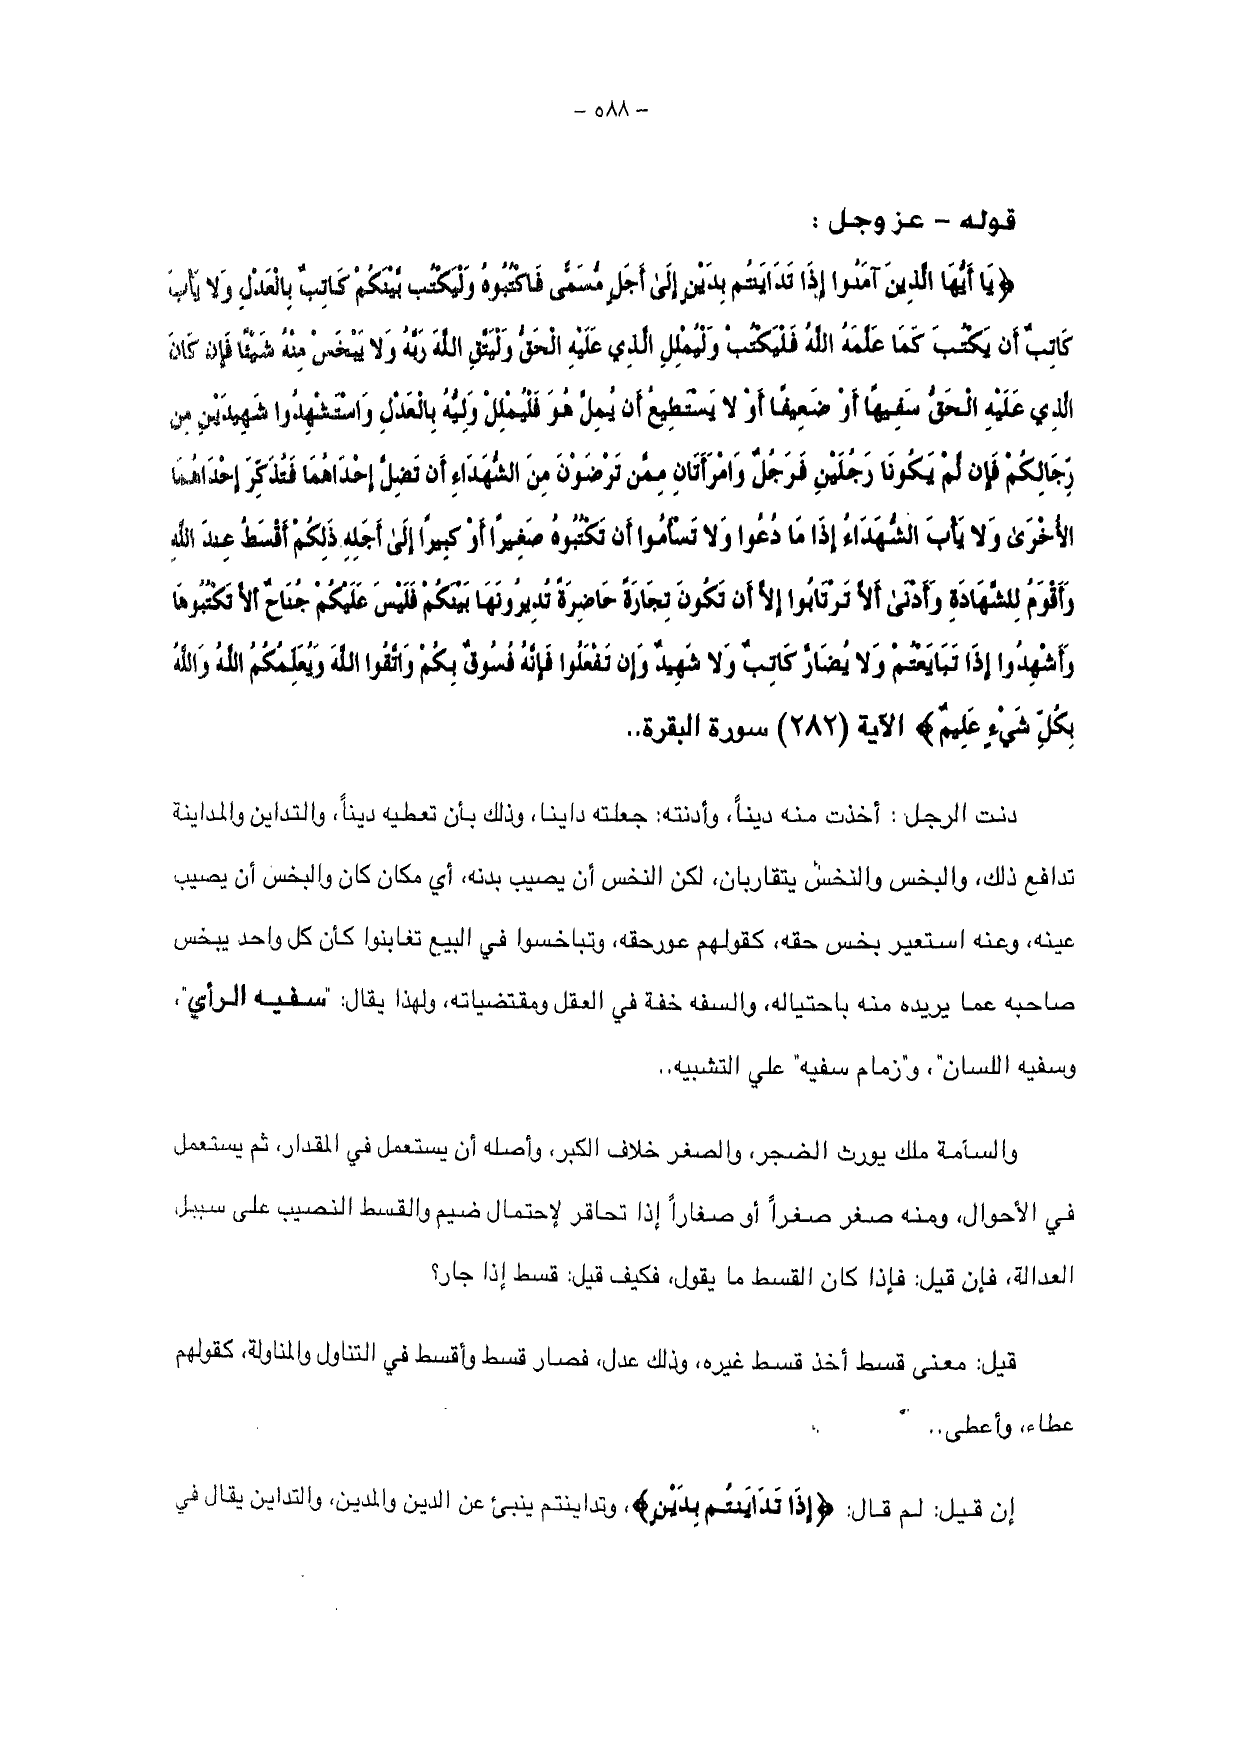 – ٥٨٨ –
قوله – عز وجل :
﴿يَا أَيُّهَا الَّذِينَ آمَنُوا إِذَا تَدَايَنتُم بِدَيْنٍ إِلَىٰ أَجَلٍ مُّسَمًّى فَاكْتُبُوهُ وَلْيَكْتُب بَّيْنَكُمْ كَاتِبٌ بِالْعَدْلِ وَلا يَأْبَ
كَاتِبٌ أَن يَكْتُبَ كَمَا عَلَّمَهُ اللَّهُ فَلْيَكْتُبْ وَلْيُمْلِلِ الَّذِي عَلَيْهِ الْحَقُّ وَلْيَتَّقِ اللَّهَ رَبَّهُ وَلا يَبْخَسْ مِنْهُ شَيْئًا فَإِن كَانَ
الَّذِي عَلَيْهِ الْحَقُّ سَفِيهًا أَوْ ضَعِيفًا أَوْ لا يَسْتَطِيعُ أَن يُمِلَّ هُوَ فَلْيُمْلِلْ وَلِيُّهُ بِالْعَدْلِ وَاسْتَشْهِدُوا شَهِيدَيْنِ مِن
رِّجَالِكُمْ فَإِن لَّمْ يَكُونَا رَجُلَيْنِ فَرَجُلٌ وَامْرَأَتَانِ مِمَّن تَرْضَوْنَ مِنَ الشُّهَدَاءِ أَن تَضِلَّ إِحْدَاهُمَا فَتُذَكِّرَ إِحْدَاهُمَا
الأُخْرَىٰ وَلا يَأْبَ الشُّهَدَاءُ إِذَا مَا دُعُوا وَلا تَسْأَمُوا أَن تَكْتُبُوهُ صَغِيرًا أَوْ كَبِيرًا إِلَىٰ أَجَلِهِ ذَلِكُمْ أَقْسَطُ عِندَ اللَّهِ
وَأَقْوَمُ لِلشَّهَادَةِ وَأَدْنَىٰ أَلاَّ تَرْتَابُوا إِلاَّ أَن تَكُونَ تِجَارَةً حَاضِرَةً تُدِيرُونَهَا بَيْنَكُمْ فَلَيْسَ عَلَيْكُمْ جُنَاحٌ أَلاَّ تَكْتُبُوهَا
وَأَشْهِدُوا إِذَا تَبَايَعْتُمْ وَلا يُضَارَّ كَاتِبٌ وَلا شَهِيدٌ وَإِن تَفْعَلُوا فَإِنَّهُ فُسُوقٌ بِكُمْ وَاتَّقُوا اللَّهَ وَيُعَلِّمُكُمُ اللَّهُ وَاللَّهُ
بِكُلِّ شَيْءٍ عَلِيمٌ﴾ الآية (٢٨٢) سورة البقرة..
دنت الرجل : أخذت منه ديناً، وأدنته: جعلته داينا، وذلك بأن تعطيه ديناً، والتداين والمداينة
تدافع ذلك، والبخس والنخسْ يتقاربان، لكن النخس أن يصيب بدنه، أي مكان كان والبخس أن يصيب
عينه، وعنه استعير بخس حقه، كقولهم عورحقه، وتباخسوا في البيع تغابنوا كأن كل واحد يبخس
صاحبه عما يريده منه باحتياله، والسفه خفة في العقل ومقتضياته، ولهذا يقال: "سفيه الرأي"،
وسفيه اللسان"، و"زمام سفيه" علي التشبيه..
والسآمة ملك يورث الضجر، والصغر خلاف الكبر، وأصله أن يستعمل في المقدار، ثم يستعمل
في الأحوال، ومنه صغر صغراً أو صغاراً إذا تحاقر لإحتمال ضيم والقسط النصيب على سبيل
العدالة، فإن قيل: فإذا كان القسط ما يقول، فكيف قيل: قسط إذا جار؟
قيل: معنى قسط أخذ قسط غيره، وذلك عدل، فصار قسط وأقسط في التناول والمناولة، كقولهم
عطاء، وأعطى..
إن قيل: لم قال: ﴿إِذَا تَدَايَنتُم بِدَيْنٍ﴾، وتداينتم ينبئ عن الدين والمدين، والتداين يقال في